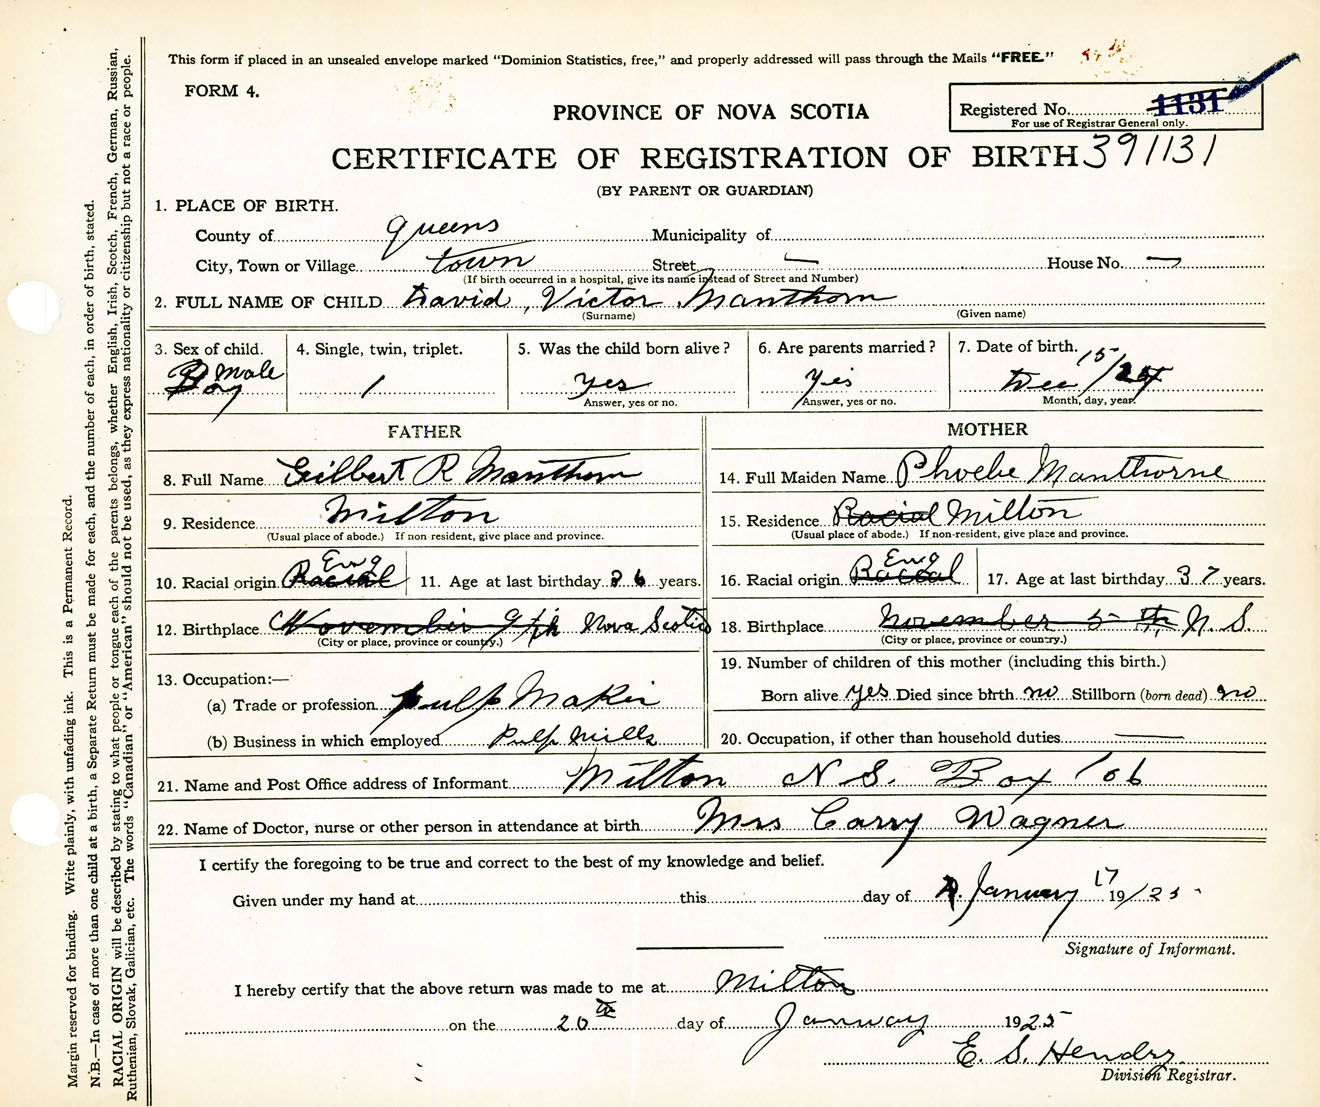 This form if placed in an unsealed envelope marked "Dominion Statistics, free," and properly addressed will pass through the Mails "FREE."
FORM 4.
PROVINCE OF NOVA SCOTIA
Registered No. 1131
For use of Registrar General only.
CERTIFICATE OF REGISTRATION OF BIRTH 391131
(BY PARENT OR GUARDIAN)
1. PLACE OF BIRTH.
County of Queens Municipality of
City, Town or Village town Street — House No. —
(If birth occurred in a hospital, give its name instead of Street and Number)
2. FULL NAME OF CHILD David, Victor Manthorn
(Surname) (Given name)
3. Sex of child. 4. Single, twin, triplet. 5. Was the child born alive? 6. Are parents married? 7. Date of birth.
Boy Male 1 Yes Yes Dec 15/24
Answer, yes or no. Answer, yes or no. Month, day, year.
FATHER MOTHER
8. Full Name Gilbert R Manthorn 14. Full Maiden Name Phoebe Manthorne
9. Residence Milton 15. Residence Racial Milton
(Usual place of abode.) If non-resident, give place and province. (Usual place of abode.) If non-resident, give place and province.
10. Racial origin Racial Eng 11. Age at last birthday 26 years. 16. Racial origin Racial Eng 17. Age at last birthday 37 years.
12. Birthplace November 9th Nova Scotia 18. Birthplace November 5th N. S.
(City or place, province or country.) (City or place, province or country.)
13. Occupation:— 19. Number of children of this mother (including this birth.)
(a) Trade or profession pulp Maker Born alive yes Died since birth no Stillborn (born dead) no
(b) Business in which employed Pulp Mills 20. Occupation, if other than household duties —
21. Name and Post Office address of Informant Milton N S. Box 106
22. Name of Doctor, nurse or other person in attendance at birth Mrs Carry Wagner
I certify the foregoing to be true and correct to the best of my knowledge and belief.
Given under my hand at this day of January 17 19/25
Signature of Informant.
I hereby certify that the above return was made to me at Milton
on the 20th day of January 1925
E. S. Hendry
Division Registrar.
Margin reserved for binding. Write plainly, with unfading ink. This is a Permanent Record.
N.B.—In case of more than one child at a birth, a Separate Return must be made for each, and the number of each, in order of birth, stated.
RACIAL ORIGIN will be described by stating to what people or tongue each of the parents belongs, whether English, Irish, Scotch, French, German, Russian,
Ruthenian, Slovak, Galician, etc. The words "Canadian" or "American" should not be used, as they express nationality or citizenship but not a race or people.